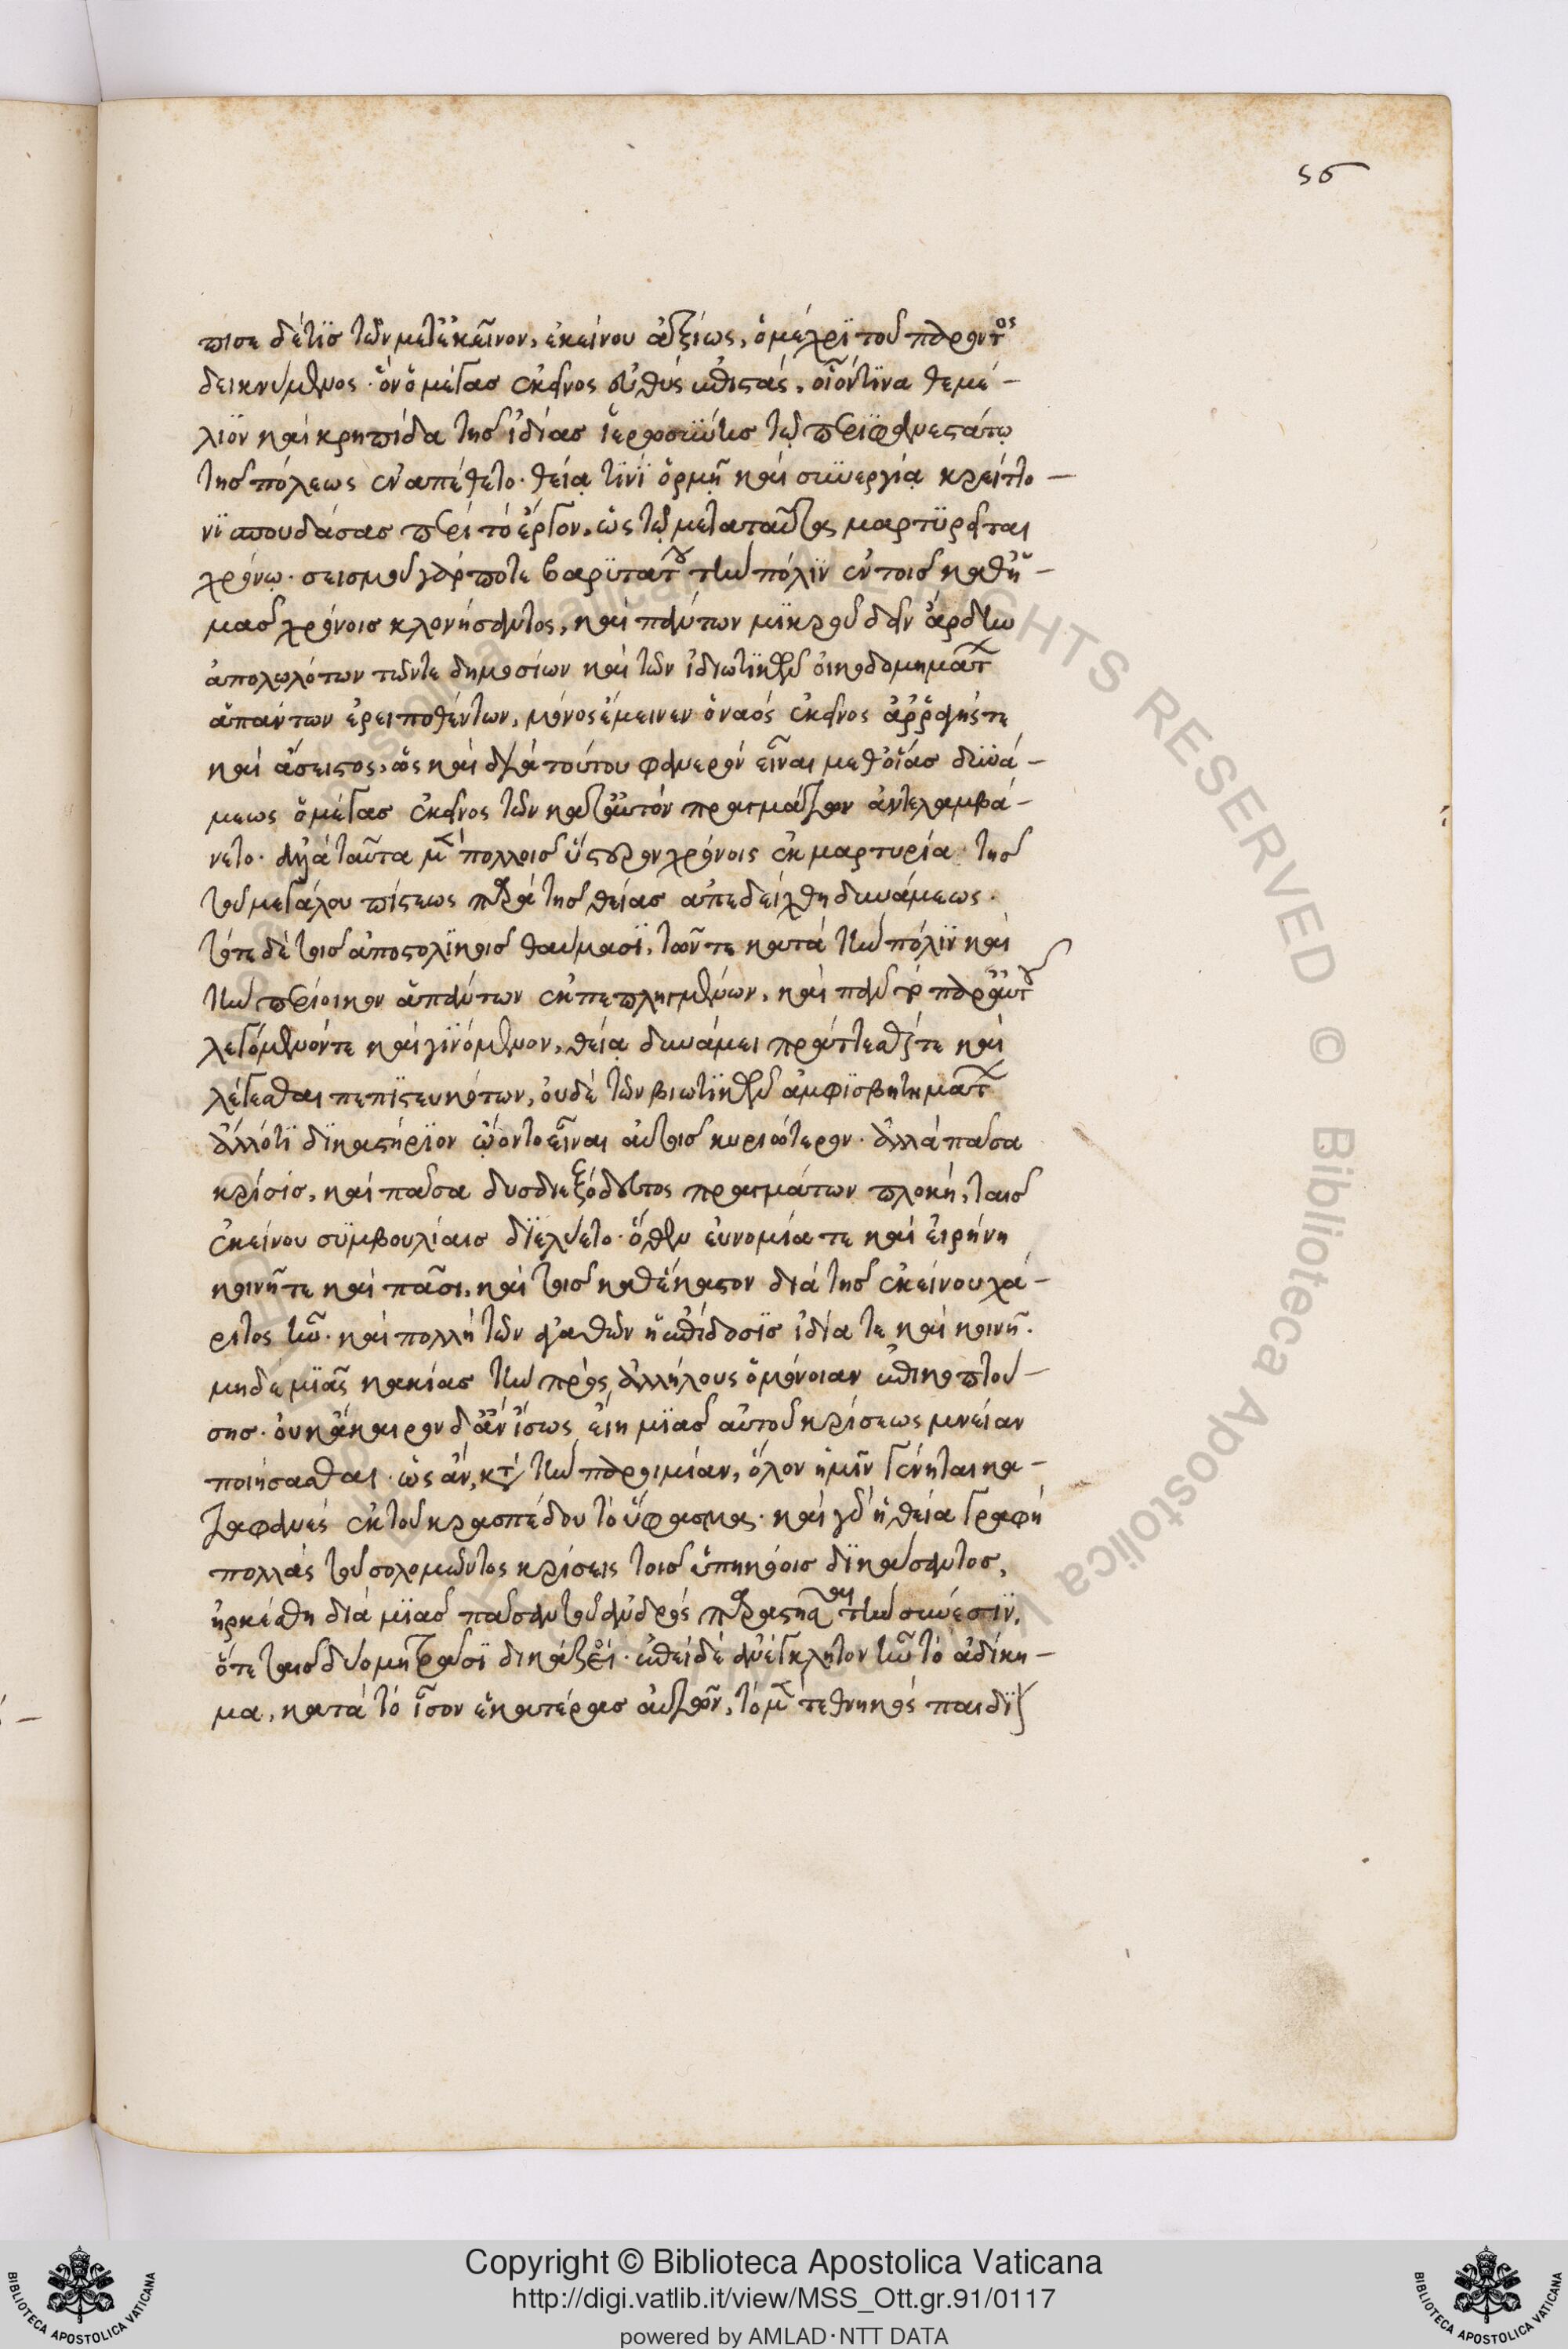 56
πισε δέ τϊς τῶν μετ' ἐκεῖνον, ἐκείνου ἀξίως, ὁ μέχρϊ τοῦ παρόντος
δεικνύμενος· ὃν ὁ μέγας ἐκεῖνος εὐθὺς ἐπιστάς, οἷόν τϊνα θεμέ-
λϊον καὶ κρηπίδα τῆς ἰδίας ἱερωσύνης τῷ περϊφανεστάτῳ
τῆς πόλεως ἐναπέθετο· θείᾳ τϊνϊ ὁρμῇ καὶ συνεργίᾳ κρείττο-
νϊ σπουδάσας περὶ τὸ ἔργον, ὡς τῷ μετὰ ταῦτα μαρτϋρεῖται
χρόνῳ· σεισμοῦ γάρ ποτε βαρϋτάτου τὴν πόλϊν ἐν τοῖς καθ' ἡ-
μᾶς χρόνοις κλονήσαντος, καὶ πάντων μϊκροῦ δεῖν ἄρδην
ἀπολωλότων τῶν τε δημοσίων καὶ τῶν ἰδιωτϊκῶν οἰκοδομημάτων
ἁπάντων ἐρειποθέντων, μόνος ἔμεινεν ὁ ναὸς ἐκεῖνος ἀῤῥαγής τε
καὶ ἄσειστος, ὡς καὶ διὰ τούτου φανερὸν εἶναι μεθ' οἵας δϋνά-
μεως ὁ μέγας ἐκεῖνος τῶν κατ' αὐτὸν πραγμάτων ἀντελαμβά-
νετο· ἀλλὰ ταῦτα μὲν πολλοῖς ὕστερον χρόνοις ἐκ μαρτυρία τῆς
τοῦ μεγάλου πίστεως παρὰ τῆς θείας ἀπεδείχθη δυνάμεως·
τότε δὲ τοῖς ἀποστολϊκοῖς θαύμασϊ, τῶν τε κατὰ τὴν πόλϊν καὶ
τὴν περίοικον ἁπάντων ἐκπεπληγμένων, καὶ πᾶν τὸ παρ' αὐτοῦ
λεγόμενόν τε καὶ γϊνόμενον, θείᾳ δυνάμει πράττεσθαί τε καὶ
λέγεσθαι πεπϊστευκότων, οὐδὲ τῶν βιωτϊκῶν ἀμφϊσβητημάτων
ἄλλό τϊ δϊκαστήρϊον ᾤοντο εἶναι αὐτοῖς κυριώτερον· ἀλλὰ πᾶσα
κρίσϊς, καὶ πᾶσα δυσδιεξόδευτος πραγμάτων πλοκή, ταῖς
ἐκείνου σϋμβουλίαις δϊελύετο· ὅθεν εὐνομία τε καὶ εἰρήνη
κοινῇ τε καὶ πᾶσι, καὶ τοῖς καθέκαστον διὰ τῆς ἐκείνου χά-
ριτος ἦν· καὶ πολλὴ τῶν ἀγαθῶν ἡ ἐπίδοσϊς ἰδίᾳ τε καὶ κοινῇ·
μηδὲ μϊᾶς κακίας τὴν πρὸς ἀλλήλους ὁμόνοιαν ἐπικοπτού-
σης· οὐκ ἄκαιρον δ' ἂν ἴσως εἴη μϊᾶς αὐτοῦ κρίσεως μνείαν
ποιήσασθαι· ὡς ἄν, κατὰ τὴν παροιμίαν, ὅλον ἡμῖν γένηται κα-
ταφανὲς ἐκ τοῦ κρασπέδου τὸ ὕφασμα· καὶ γὰρ ἡ θεία γραφὴ
πολλὰς τοῦ σολομῶντος κρίσεις τοῖς ὑπηκόοις δϊκάσαντος,
ἠρκέσθη διὰ μϊᾶς πᾶσαν τοῦ ἀνδρὸς παραστῆσαι τὴν σύνεσϊν,
ὅτε ταῖς δύο μητράσϊ δικάζει· ἐπειδὲ ἀνέγκλητον ἦν τὸ ἀδίκη-
μα, κατὰ τὸ ἶσον ἑκατέρας αὐτῶν, τὸ μὲν τεθνηκὸς παιδίον
Copyright © Biblioteca Apostolica Vaticana
http://digi.vatlib.it/view/MSS_Ott.gr.91/0117
powered by AMLAD·NTT DATA